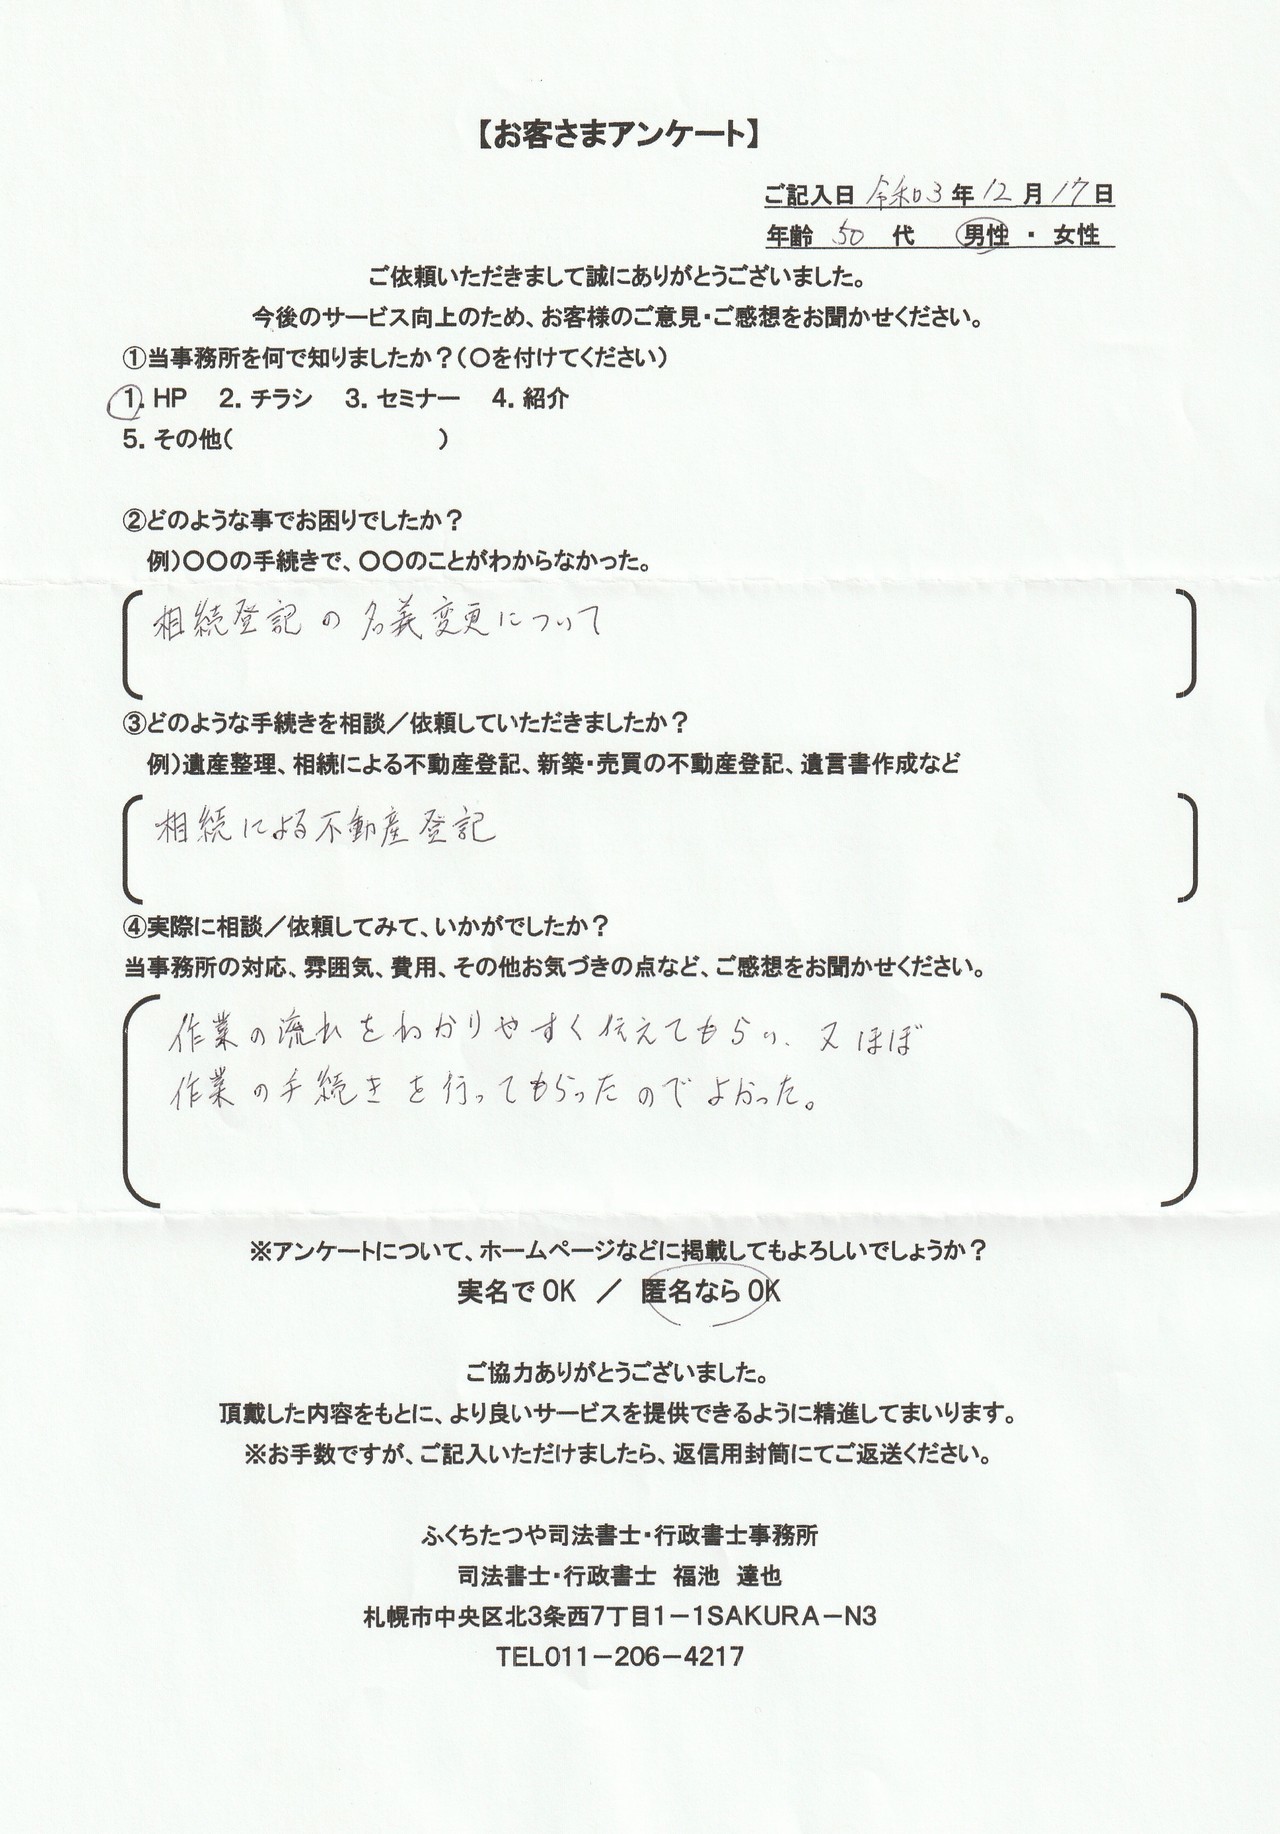 【お客さまアンケート】
ご記入日 令和3年12月17日
年齢 50 代 男性 ・ 女性
ご依頼いただきまして誠にありがとうございました。
今後のサービス向上のため、お客様のご意見・ご感想をお聞かせください。
①当事務所を何で知りましたか？（〇を付けてください）
1. HP 2. チラシ 3. セミナー 4. 紹介
5. その他（ ）
②どのような事でお困りでしたか？
例）〇〇の手続きで、〇〇のことがわからなかった。
相続登記の名義変更について
③どのような手続きを相談／依頼していただきましたか？
例）遺産整理、相続による不動産登記、新築・売買の不動産登記、遺言書作成など
相続による不動産登記
④実際に相談／依頼してみて、いかがでしたか？
当事務所の対応、雰囲気、費用、その他お気づきの点など、ご感想をお聞かせください。
作業の流れをわかりやすく伝えてもらい、又ほぼ
作業の手続きを行ってもらったのでよかった。
※アンケートについて、ホームページなどに掲載してもよろしいでしょうか？
実名でOK ／ 匿名ならOK
ご協力ありがとうございました。
頂戴した内容をもとに、より良いサービスを提供できるように精進してまいります。
※お手数ですが、ご記入いただけましたら、返信用封筒にてご返送ください。
ふくちたつや司法書士・行政書士事務所
司法書士・行政書士 福池 達也
札幌市中央区北3条西7丁目1－1SAKURA－N3
TEL011－206－4217